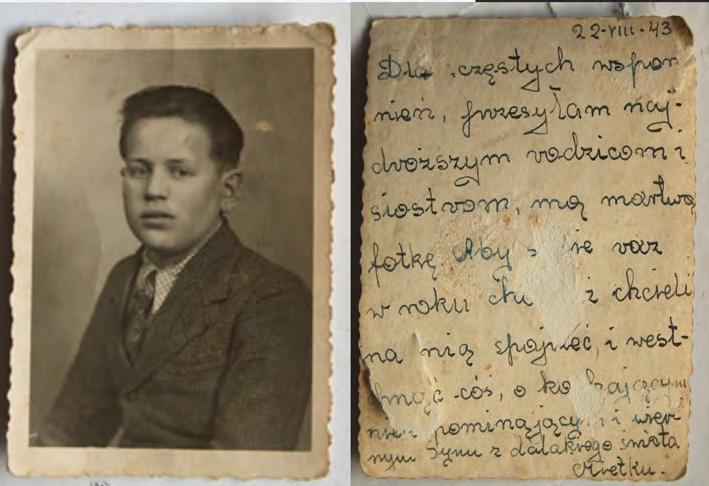 22-VIII-43
Dla częstych wspom
nień, przesyłam naj-
droższym rodzicom i
siostrom, mą martwą
fotkę. Aby raz
w roku chcieli
na nią spojrzeć, i west-
chnąć coś, o
i wier
nym Synu z dalakiego świata
Mietku.